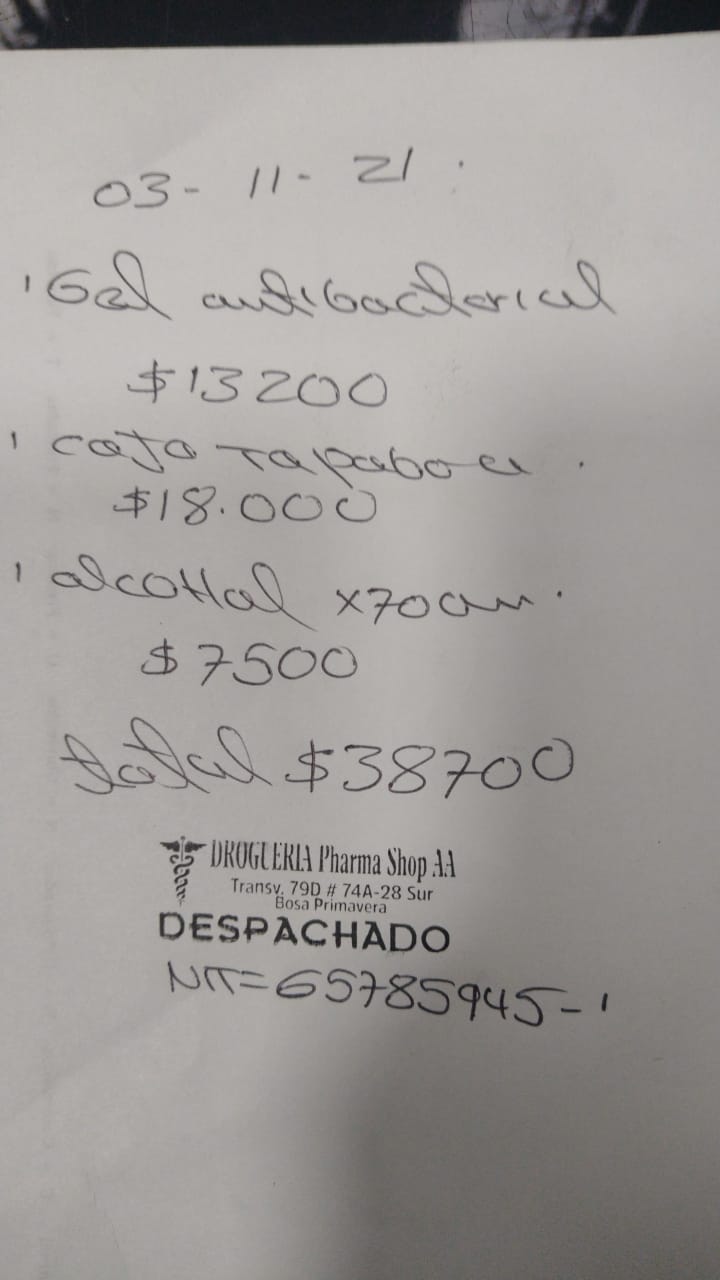 03- 11- 21.
1 Gel antibacterial
$13200
1 caja Tapaboca.
$18.000
1 alcoHol x700m.
$7500
total $38700
DROGUERIA Pharma Shop AA
Transv. 79D # 74A-28 Sur
Bosa Primavera
DESPACHADO
NIT=65785945-1